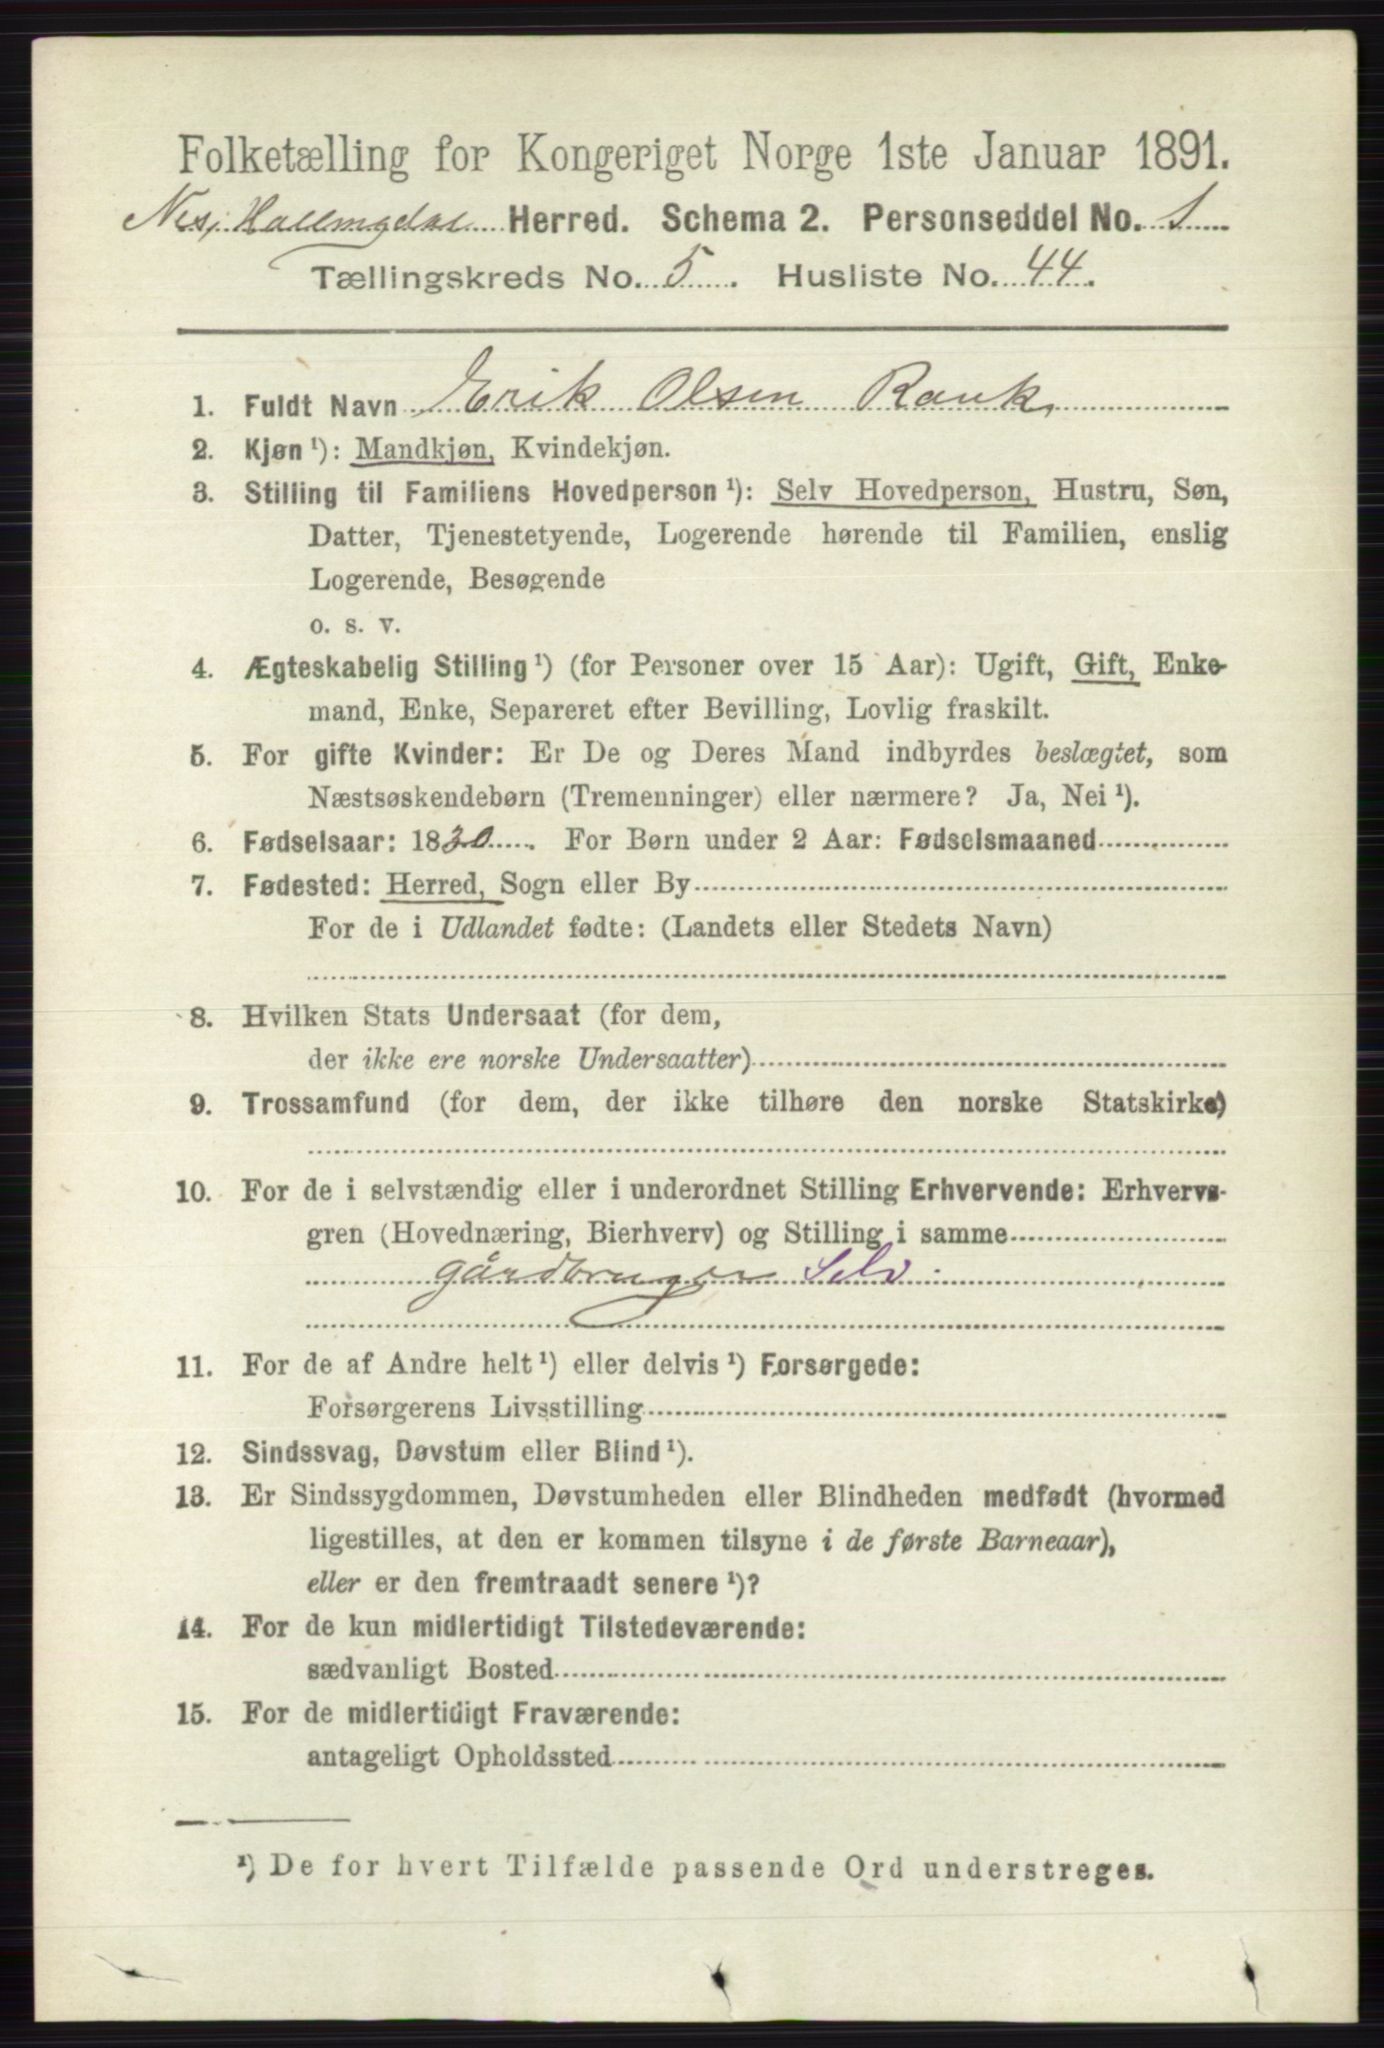 Folketælling for Kongeriget Norge 1ste Januar 1891.
Nes, Hallingdal Herred. Schema 2. Personseddel No. 1
Tællingskreds No. 5. Husliste No. 44.
1. Fuldt Navn Erik Olsen Rauk
2. Kjøn¹): Mandkjøn, Kvindekjøn.
3. Stilling til Familiens Hovedperson¹): Selv Hovedperson, Hustru, Søn,
Datter, Tjenestetyende, Logerende hørende til Familien, enslig
Logerende, Besøgende
o. s. v.
4. Ægteskabelig Stilling¹) (for Personer over 15 Aar): Ugift, Gift, Enke-
mand, Enke, Separeret efter Bevilling, Lovlig fraskilt.
5. For gifte Kvinder: Er De og Deres Mand indbyrdes beslægtet, som
Næstsøskendebørn (Tremenninger) eller nærmere? Ja, Nei¹).
6. Fødselsaar: 1830. For Børn under 2 Aar: Fødselsmaaned
7. Fødested: Herred, Sogn eller By
For de i Udlandet fødte: (Landets eller Stedets Navn)
8. Hvilken Stats Undersaat (for dem,
der ikke ere norske Undersaatter)
9. Trossamfund (for dem, der ikke tilhøre den norske Statskirke)
10. For de i selvstændig eller i underordnet Stilling Erhvervende: Erhvervs-
gren (Hovednæring, Bierhverv) og Stilling i samme
gårdbruger Selv.
11. For de af Andre helt¹) eller delvis¹) Forsørgede:
Forsørgerens Livsstilling
12. Sindssvag, Døvstum eller Blind¹).
13. Er Sindssygdommen, Døvstumheden eller Blindheden medfødt (hvormed
ligestilles, at den er kommen tilsyne i de første Barneaar),
eller er den fremtraadt senere¹)?
14. For de kun midlertidigt Tilstedeværende:
sædvanligt Bosted
15. For de midlertidigt Fraværende:
antageligt Opholdssted
¹) De for hvert Tilfælde passende Ord understreges.